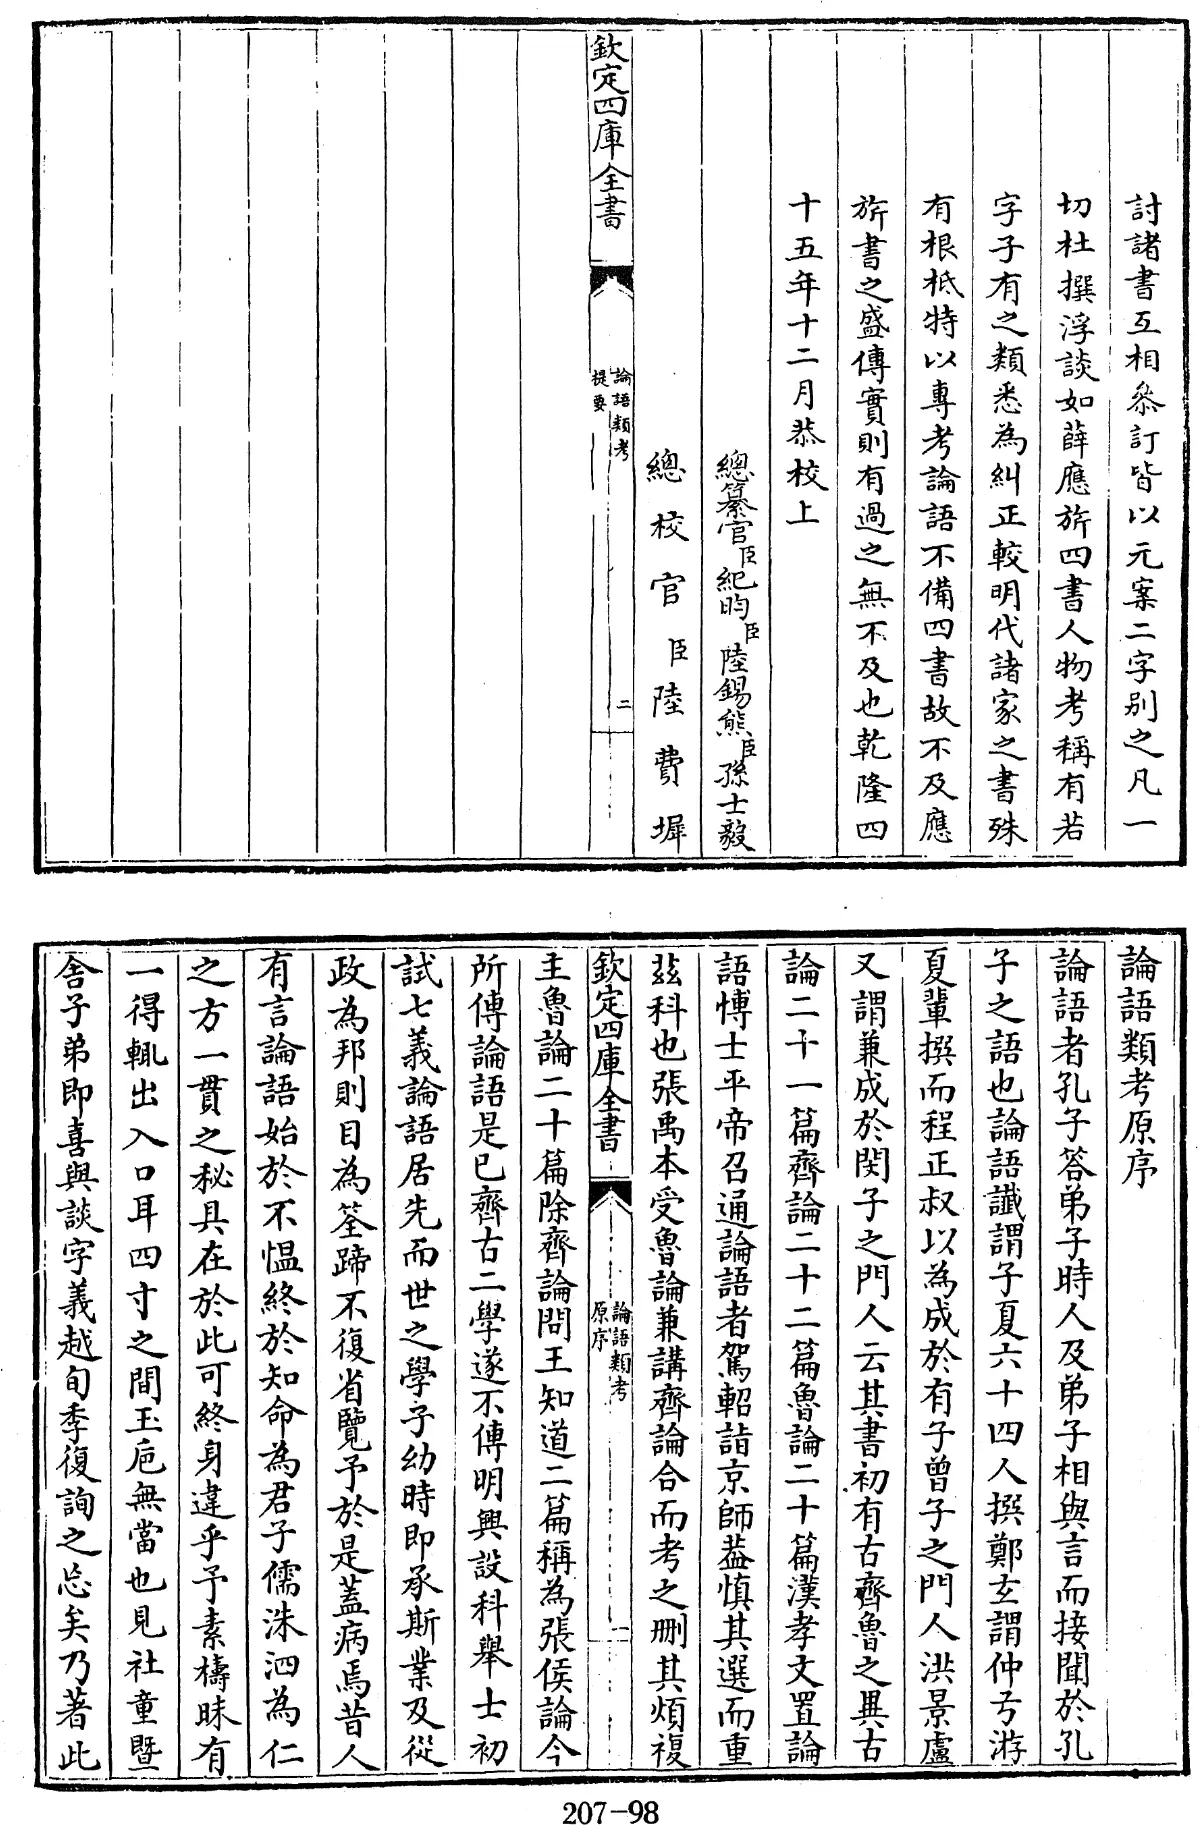 討諸書互相叅訂皆以元案二字别之凡一
切杜撰浮談如薛應旂四書人物考稱有若
字子有之類悉為糾正較明代諸家之書殊
有根柢特以專考論語不備四書故不及應
旂書之盛傳實則有過之無不及也乾隆四
十五年十二月恭校上
總纂官臣紀昀臣陸錫熊臣孫士毅
總校官臣陸費墀
欽定四庫全書
論語類考
提要
二
論語類考原序
論語者孔子答弟子時人及弟子相與言而接聞於孔
子之語也論語讖謂子夏六十四人撰鄭玄謂仲弓游
夏輩撰而程正叔以為成於有子曾子之門人洪景盧
又謂兼成於閔子之門人云其書初有古齊魯之異古
論二十一篇齊論二十二篇魯論二十篇漢孝文置論
語博士平帝召通論語者駕軺詣京師葢慎其選而重
兹科也張禹本受魯論兼講齊論合而考之刪其煩複
欽定四庫全書
論語類考
原序
一
主魯論二十篇除齊論問王知道二篇稱為張侯論今
所傳論語是已齊古二學遂不傳明興設科舉士初
試七義論語居先而世之學子幼時即承斯業及從
政為邦則目為筌蹄不復省覽予於是蓋病焉昔人
有言論語始於不愠終於知命為君子儒洙泗為仁
之方一貫之秘具在於此可終身違乎予素檮昧有
一得輒出入口耳四寸之間玉巵無當也見社童暨
舍子弟即喜與談字義越旬季復詢之忘矣乃著此
207-98